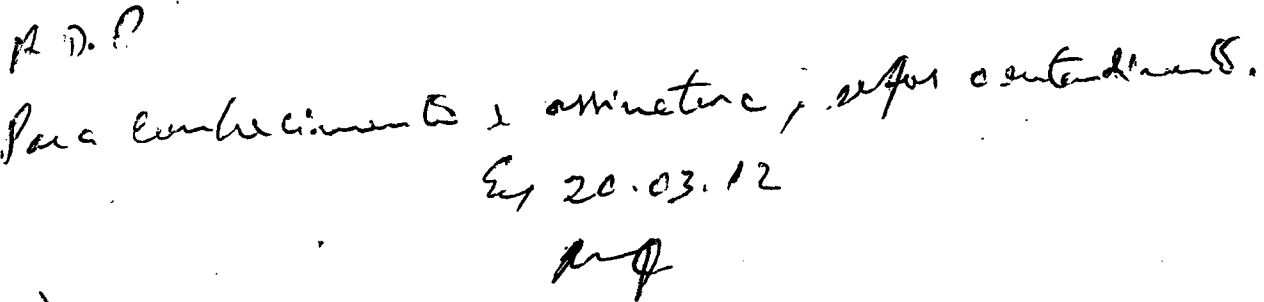 A D.P
Para conhecimento e assinatura, se for o entendimento.
Em 20.03.12